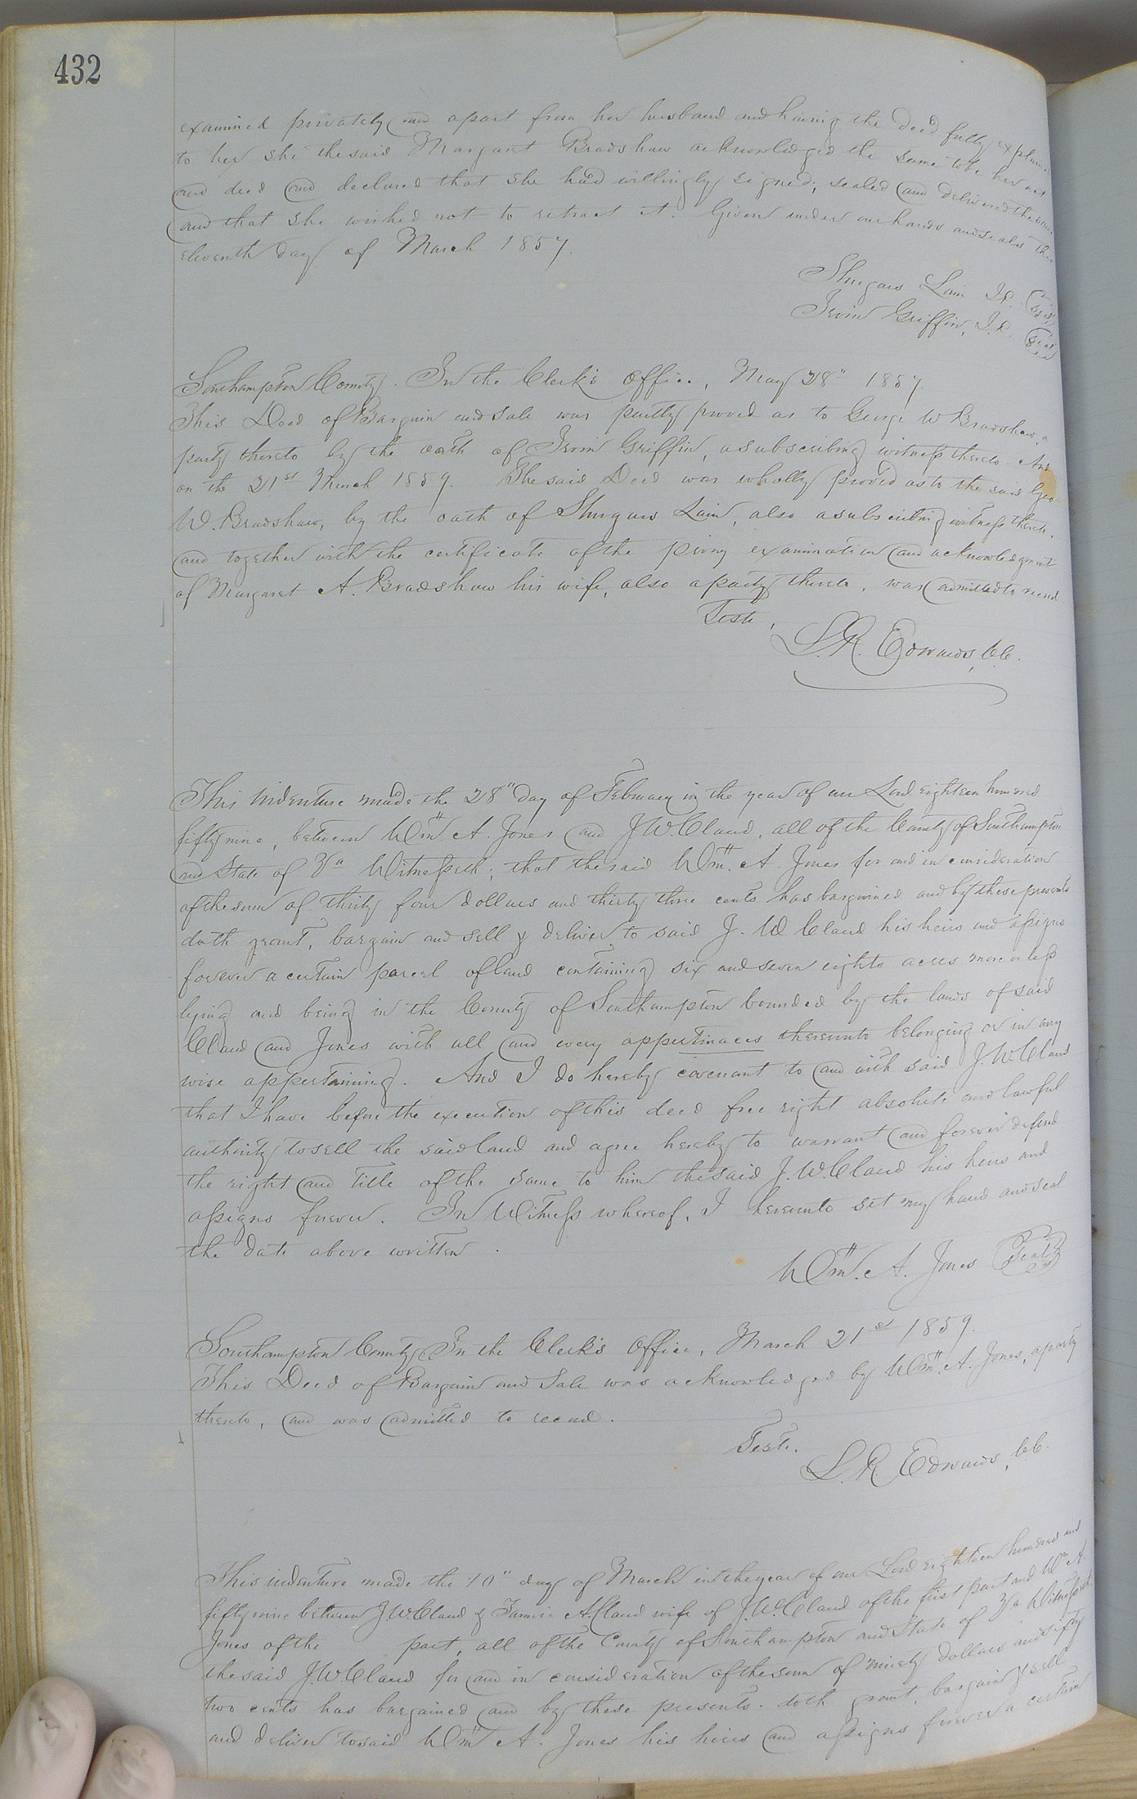 432
examined privately and apart from her husband and having the deed fully explained
to her she the said Margaret Bradshaw acknowledged the same to be her act
and deed and declared that she had willingly signed, sealed and delivered the same
and that she wished not to retract it. Given under our hands and seals this
eleventh day of March 1857.
Shugars Lain J.P. Seal
Irvin Griffin, J.P. Seal
Southampton County. In the Clerk's Office, May 28" 1857
This Deed of Bargain and sale was partly proved as to George W Bradshaw, a
party thereto by the oath of Irvin Griffin, a subscribing witness thereto. And
on the 21st March 1859. The said Deed was wholly proved as to the said Geo
W. Bradshaw, by the oath of Shugars Lain, also a subscribing witness thereto,
and together with the certificate of the privy examination and acknowledgment
of Margaret A. Bradshaw his wife, also a party thereto, was admitted to record
Teste,
L. R. Edwards, CC.
This Indenture made the 28" day of February in the year of our Lord eighteen hundred
fifty nine, between Wm A. Jones and J W Claud, all of the County of Southampton
and State of Va Witnesseth; that the said Wm. A. Jones for and in consideration
of the sum of thirty four dollars and thirty three cents has bargained and by these presents
doth grant, bargain and sell & deliver to said J. W Claud his heirs and assigns
forever a certain parcel of land containing six and seven eights acres more or less
lying and being in the County of Southampton bounded by the lands of said
Claud and Jones with all and every appertinaces thereunto belonging or in any
wise appertaining. And I do hereby covenant to and with said J. W Claud
that I have before the execution of this deed free right absolute and lawful
authority to sell the said land and agree hereby to warrant and forever defend
the right and title of the same to him the said J. W. Claud his heirs and
assigns forever. In Witness whereof, I hereunto set my hand and seal
the date above written.
Wm. A. Jones Seal
Southampton County In the Clerk's Office, March 21st 1859.
This Deed of Bargain and Sale was acknowledged by Wm. A. Jones, a party
thereto, and was admitted to record.
Teste.
L. R Edwards, CC.
This indenture made the 10" day of March in the year of our Lord eighteen hundred and
fifty nine between J W Claud & Fannie A Claud wife of J. W. Claud of the first part and Wm A
Jones of the part, all of the County of Southampton and State of Va Witnesseth
the said J. W. Claud for and in consideration of the sum of ninety dollars and sixty
two cents has bargained and by these presents doth grant, bargain & sell
and deliver to said Wm A. Jones his heirs and assigns forever a certain